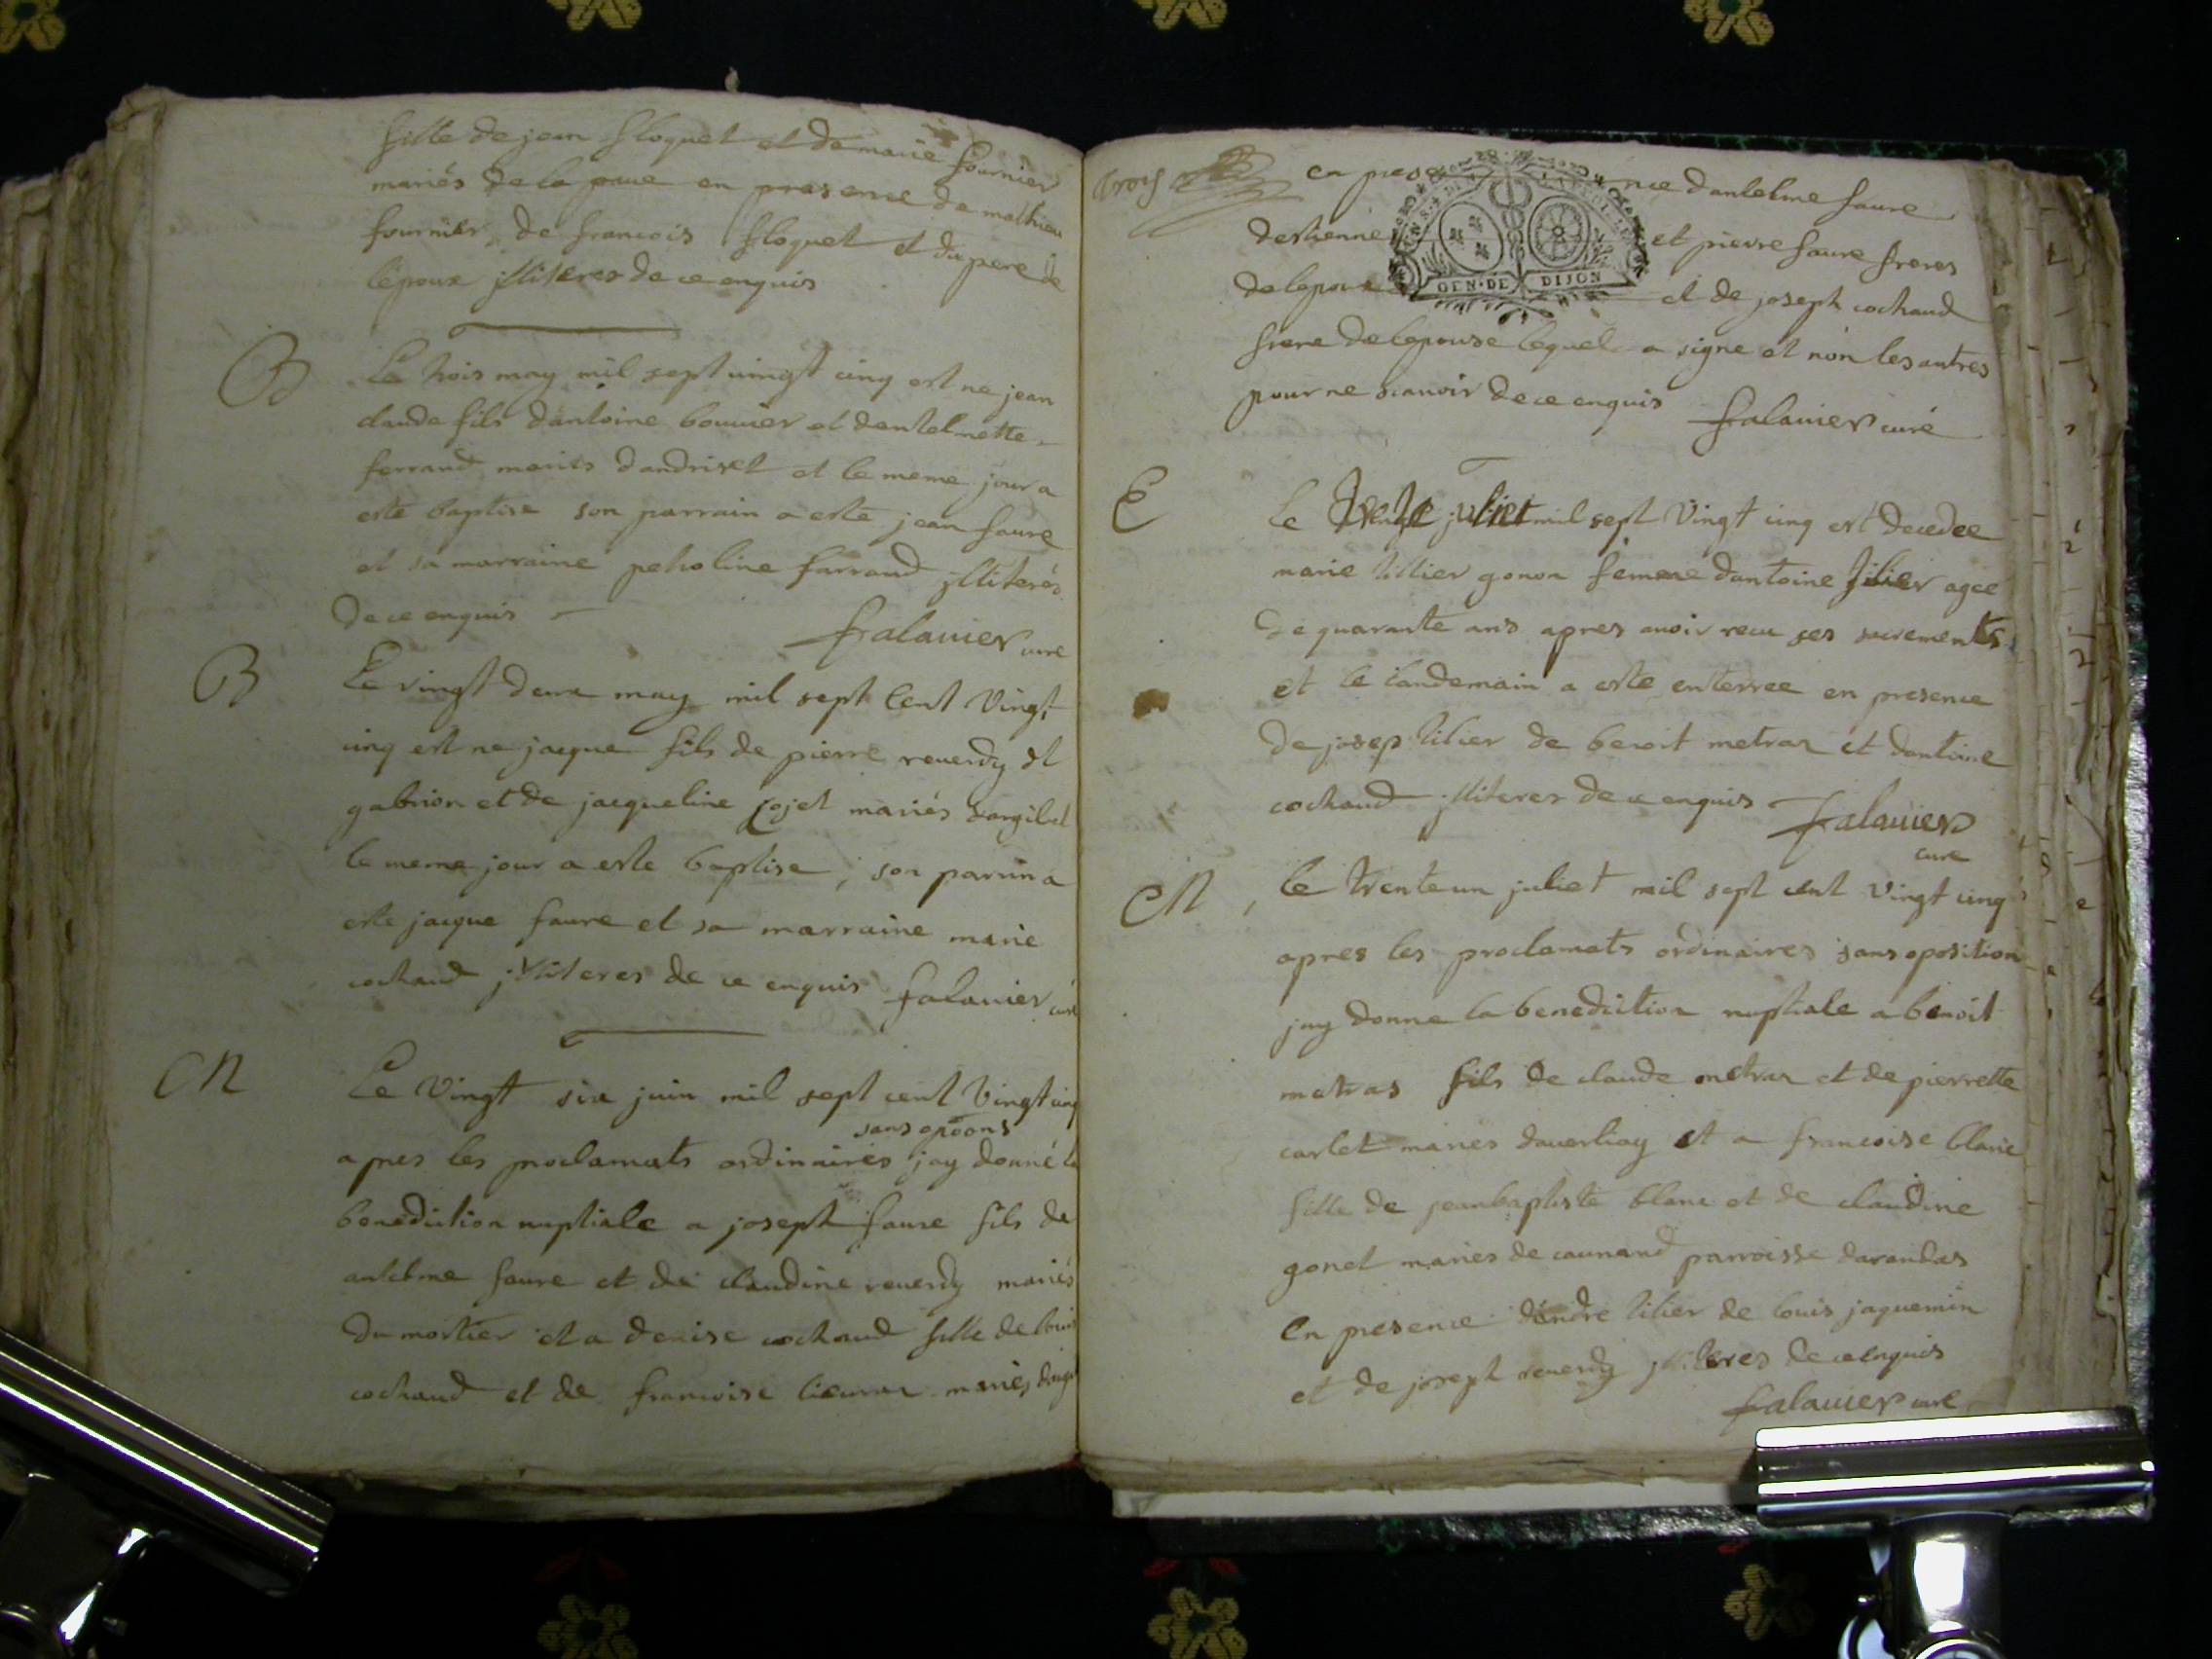 fille de jean floquet et de marie fournier
mariés de la in presence de mathieu
fournier, de francois floquet et du pere de
lepoux jlliteres de ce enquis
B
Le trois may mil sept vingt cinq est ne jean
claude fils dantoine bouvier et dentelmette
ferrand mariés dandriset et le meme jour a
este baptise son parrain a este jean faure
et sa marraine farraud jlliterés
de ce enquis
falavier curé
B
Le vingt deux may mil sept Cent Vingt
cinq est ne jacque fils de pierre reuerdy dt
gabrion et de jacqueline mariés
le meme jour a este baptise, son parrin a
este jacque faure et sa marraine marie
cochaud jlliteres de ce enquis falavier curé
M
Le Vingt six juin mil sept cent Vingt cinq
sans opoons
apres les proclamats ordinaires jay donné la
benediction nuptiale a joseph faure fils de
antelme faure et de claudine reuerdy mariés
du mortier et a denise cochaud fille de louis
cochaud et de francoise mariés
trois
en presence dantelme faure
destienne et pierre faure freres
de lepoux et de joseph cochaud
GEN·DE DIJON
frere de lepouse lequel a signe et non les autres
pour ne scauoir de ce enquis falavier curé
E
Le juliet mil sept Vingt cinq est decedee
marie tillier gonon femme dantoine tilier agee
de quarante ans apres auoir receu ses sacrements
et le landemain a este enterree en presence
de josep tilier de benoit metraz et dantoine
cochaud jlliteres de ce enquis falavier
curé
M
le trente un juliet mil sept cent Vingt cinq
apres les proclamats ordinaires sans oposition
jay donne la benediction nuptiale a benoit
metras fils de claude metraz et de pierrette
carlet maries et a francoise blanc
fille de jeanbaptiste blanc et de claudine
gonet maries de parroisse darandas
en presence dandre tilier de louis jaquemin
et de joseph reuerdy jlliteres de ce enquis
falavier curé